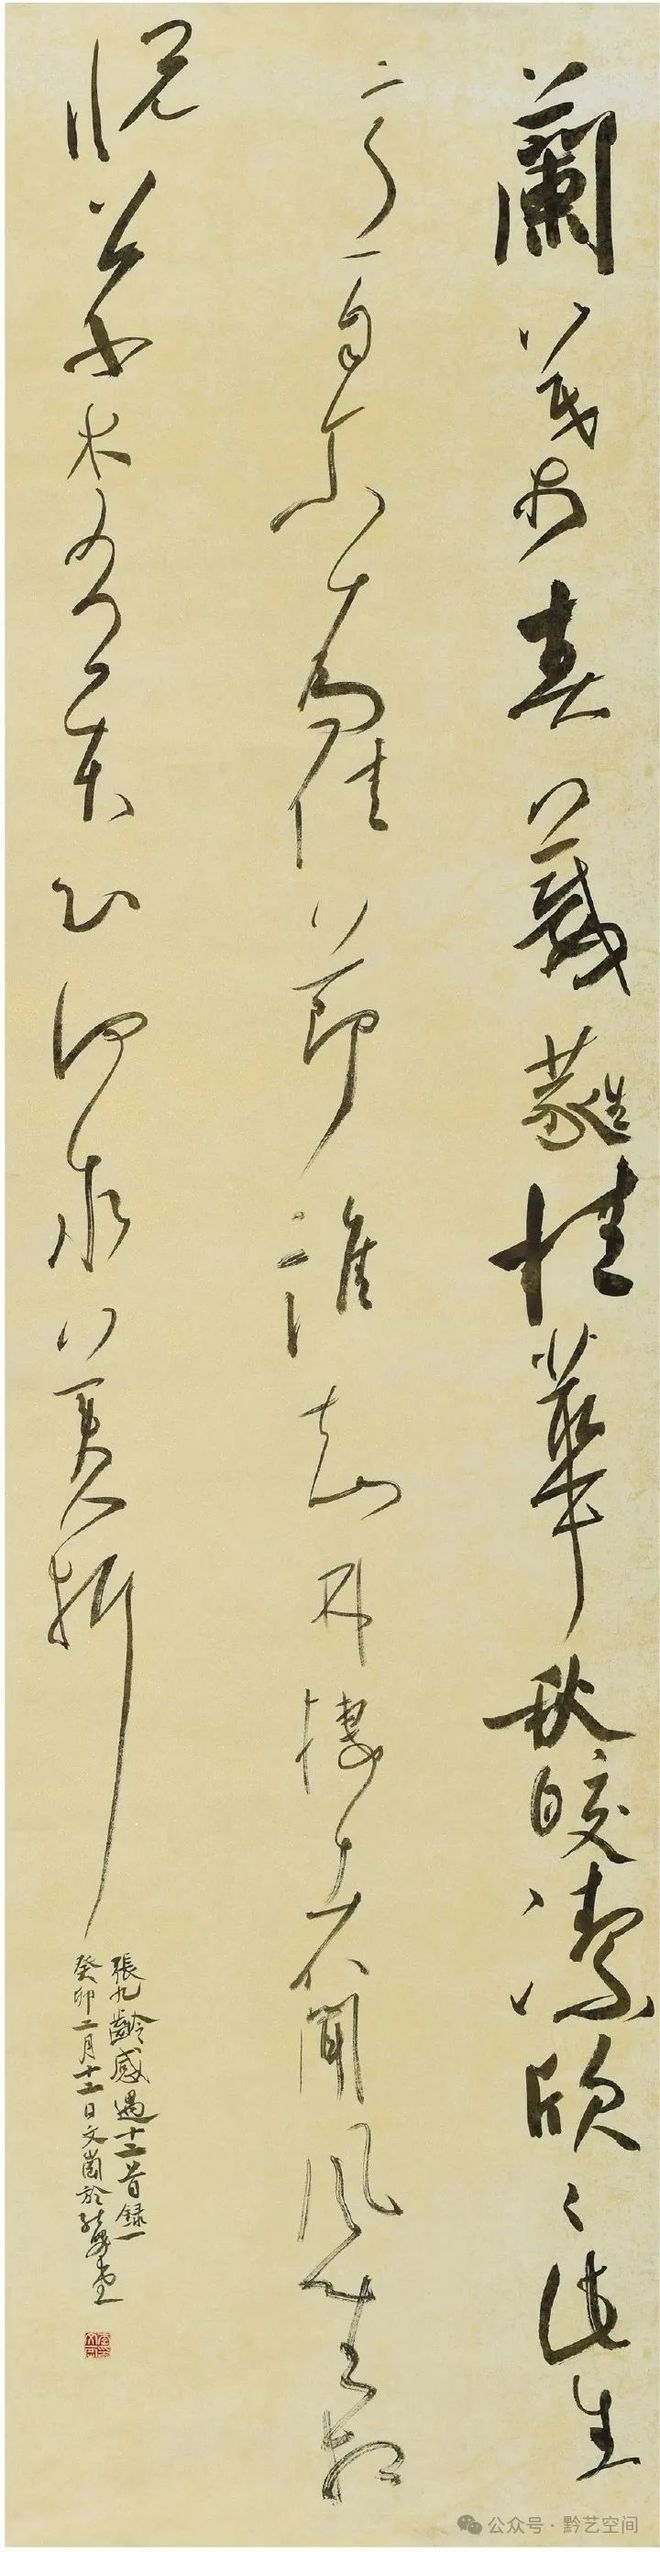 蘭葉春葳蕤桂華秋皎潔欣々此生
意自爾為佳節誰知林棲者聞風坐相
悅草木有本心何求美人折
張九齡感遇十二首録一
癸卯二月十二日文 於 堂
公众号·黔艺空间